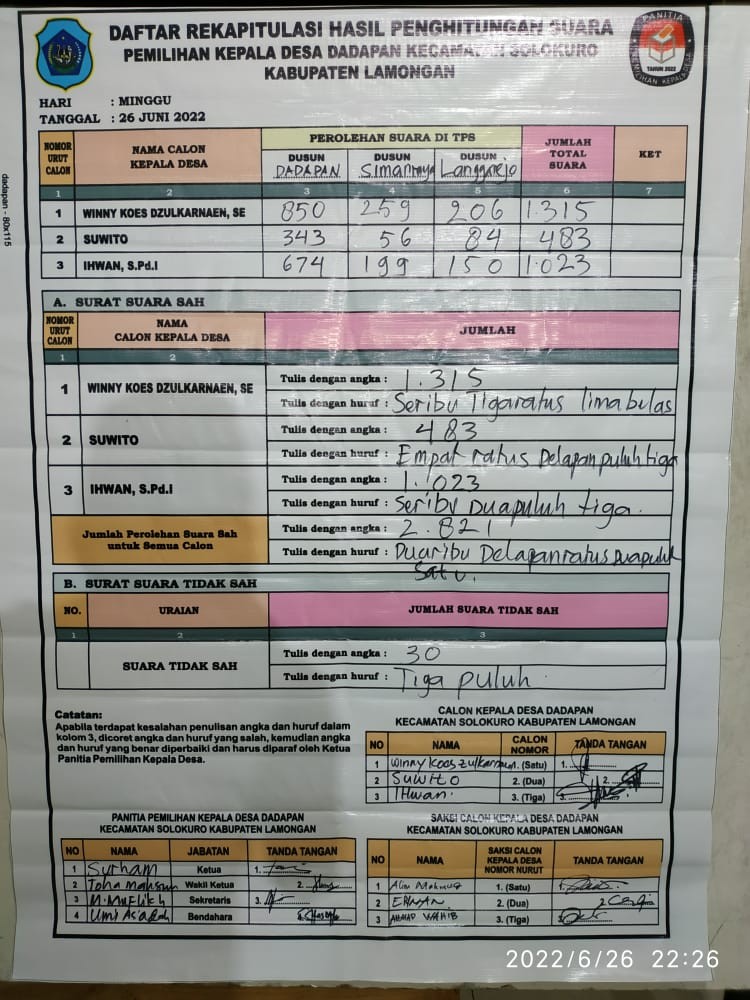 DAFTAR REKAPITULASI HASIL PENGHITUNGAN SUARA
PEMILIHAN KEPALA DESA DADAPAN KECAMATAN SOLOKURO
KABUPATEN LAMONGAN
PANITIA
TAHUN 2022
PEMILIHAN KEPALA DESA
HARI : MINGGU
TANGGAL : 26 JUNI 2022
dadapan - 80x115
NOMOR URUT CALON NAMA CALON KEPALA DESA PEROLEHAN SUARA DI TPS JUMLAH TOTAL SUARA KET
DUSUN DADAPAN DUSUN Simanraya DUSUN Langgarejo
1 2 3 4 5 6 7
1 WINNY KOES DZULKARNAEN, SE 850 259 206 1.315
2 SUWITO 343 56 84 483
3 IHWAN, S.Pd.I 674 199 150 1.023
A. SURAT SUARA SAH
NOMOR URUT CALON NAMA CALON KEPALA DESA JUMLAH
1 2 3
1 WINNY KOES DZULKARNAEN, SE Tulis dengan angka : 1.315
Tulis dengan huruf : Seribu Tigaratus limabulas
2 SUWITO Tulis dengan angka : 483
Tulis dengan huruf : Empat ratus Delapan puluh tiga
3 IHWAN, S.Pd.I Tulis dengan angka : 1.023
Tulis dengan huruf : Seribu Duapuluh tiga.
Jumlah Perolehan Suara Sah untuk Semua Calon Tulis dengan angka : 2.821
Tulis dengan huruf : Duaribu Delapanratus Duapuluh
Satu.
B. SURAT SUARA TIDAK SAH
NO. URAIAN JUMLAH SUARA TIDAK SAH
1 2 3
SUARA TIDAK SAH Tulis dengan angka : 30
Tulis dengan huruf : Tiga puluh.
Catatan:
Apabila terdapat kesalahan penulisan angka dan huruf dalam
kolom 3, dicoret angka dan huruf yang salah, kemudian angka
dan huruf yang benar diperbaiki dan harus diparaf oleh Ketua
Panitia Pemilihan Kepala Desa.
CALON KEPALA DESA DADAPAN
KECAMATAN SOLOKURO KABUPATEN LAMONGAN
NO NAMA CALON NOMOR TANDA TANGAN
1 Winny Koes zulkarnaen 1. (Satu) 1.
2 SUWITO 2. (Dua) 2.
3 IHwan. 3. (Tiga) 3.
PANITIA PEMILIHAN KEPALA DESA DADAPAN
KECAMATAN SOLOKURO KABUPATEN LAMONGAN
NO NAMA JABATAN TANDA TANGAN
1 Syrham Ketua 1.
2 Toha mahsun Wakil Ketua 2.
3 M. Muflikh Sekretaris 3.
4 Umi Asadah Bendahara 4.
SAKSI CALON KEPALA DESA DADAPAN
KECAMATAN SOLOKURO KABUPATEN LAMONGAN
NO NAMA SAKSI CALON KEPALA DESA NOMOR NURUT TANDA TANGAN
1 1. (Satu) 1.
2 ERWAN. 2. (Dua) 2.
3 AHMAD WAHIB 3. (Tiga) 3.
2022/6/26 22:26